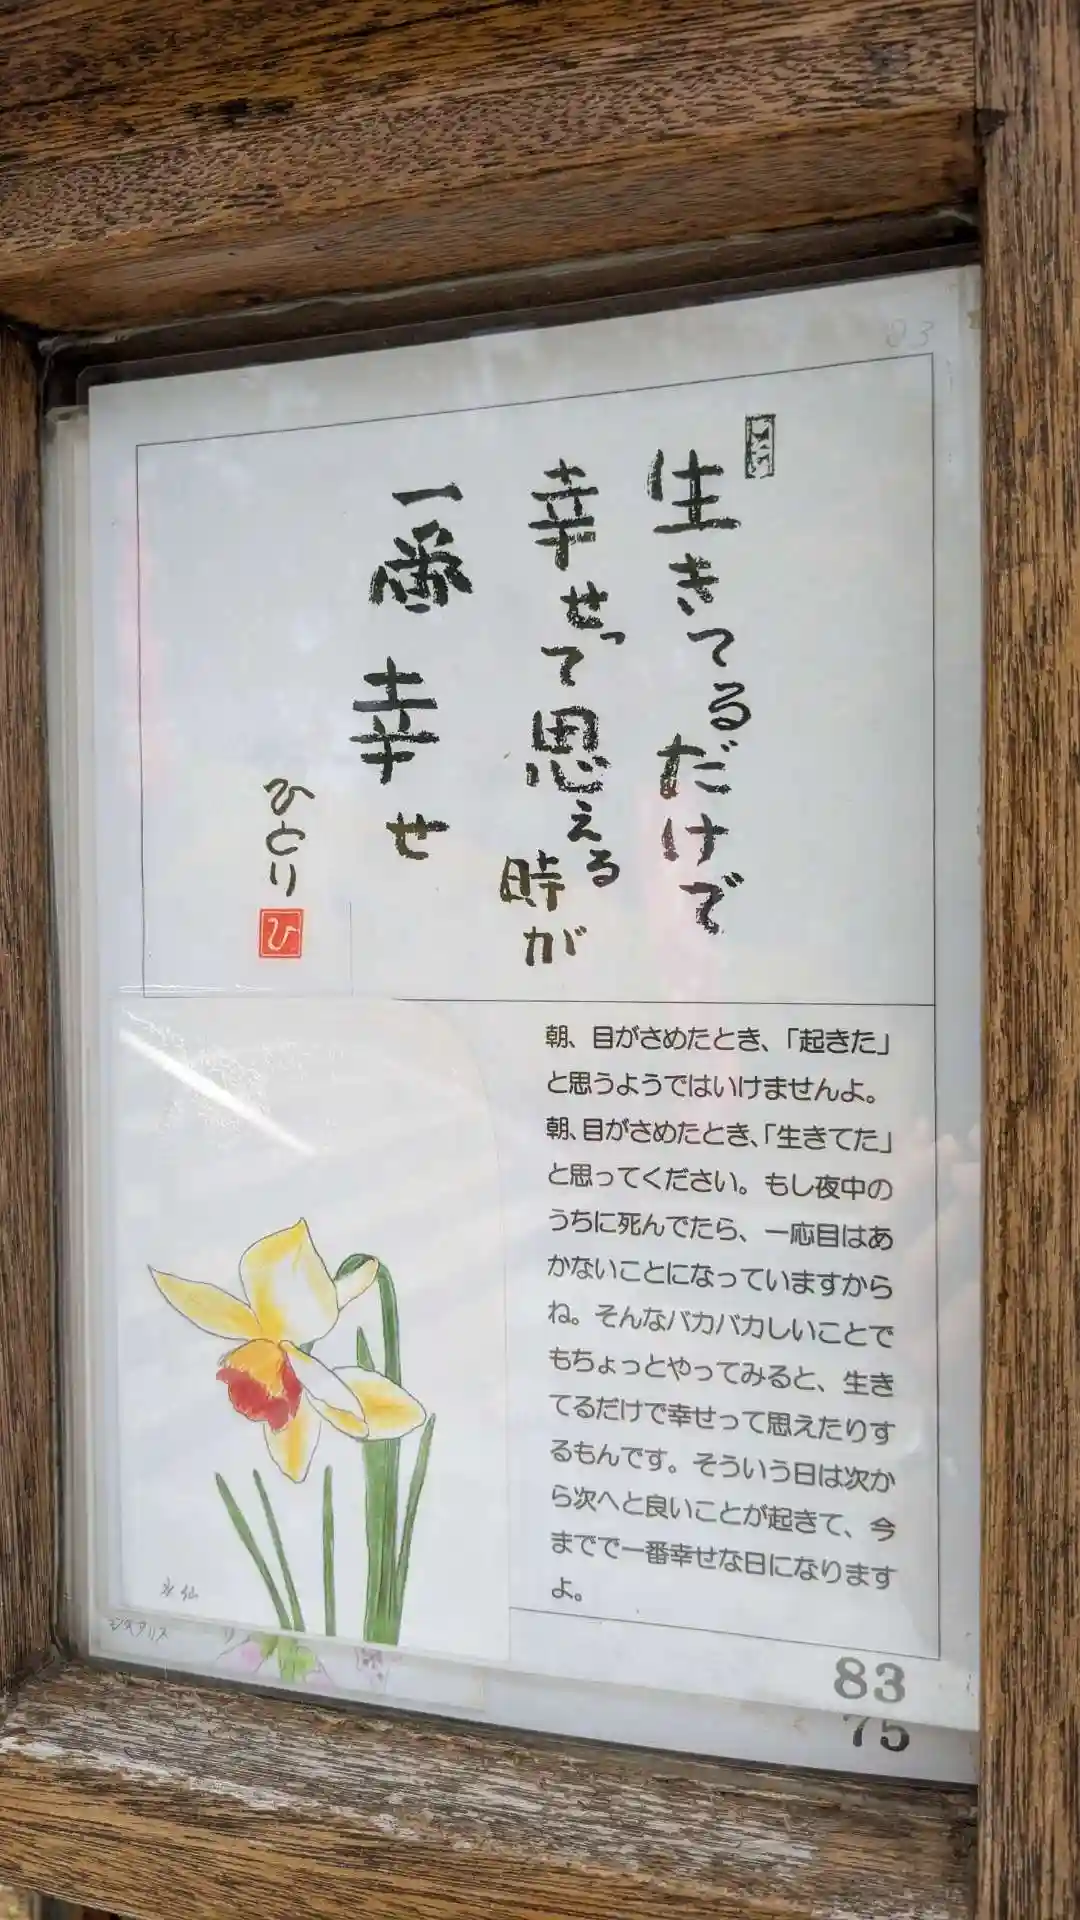 83
生きてるだけで
幸せって思える
時が
一番 幸せ
ひとり
ひ
朝、目がさめたとき、「起きた」
と思うようではいけませんよ。
朝、目がさめたとき、「生きてた」
と思ってください。もし夜中の
うちに死んでたら、一応目はあ
かないことになっていますから
ね。そんなバカバカしいことで
もちょっとやってみると、生き
てるだけで幸せって思えたりす
るもんです。そういう日は次か
ら次へと良いことが起きて、今
までで一番幸せな日になります
よ。
水仙
83
75